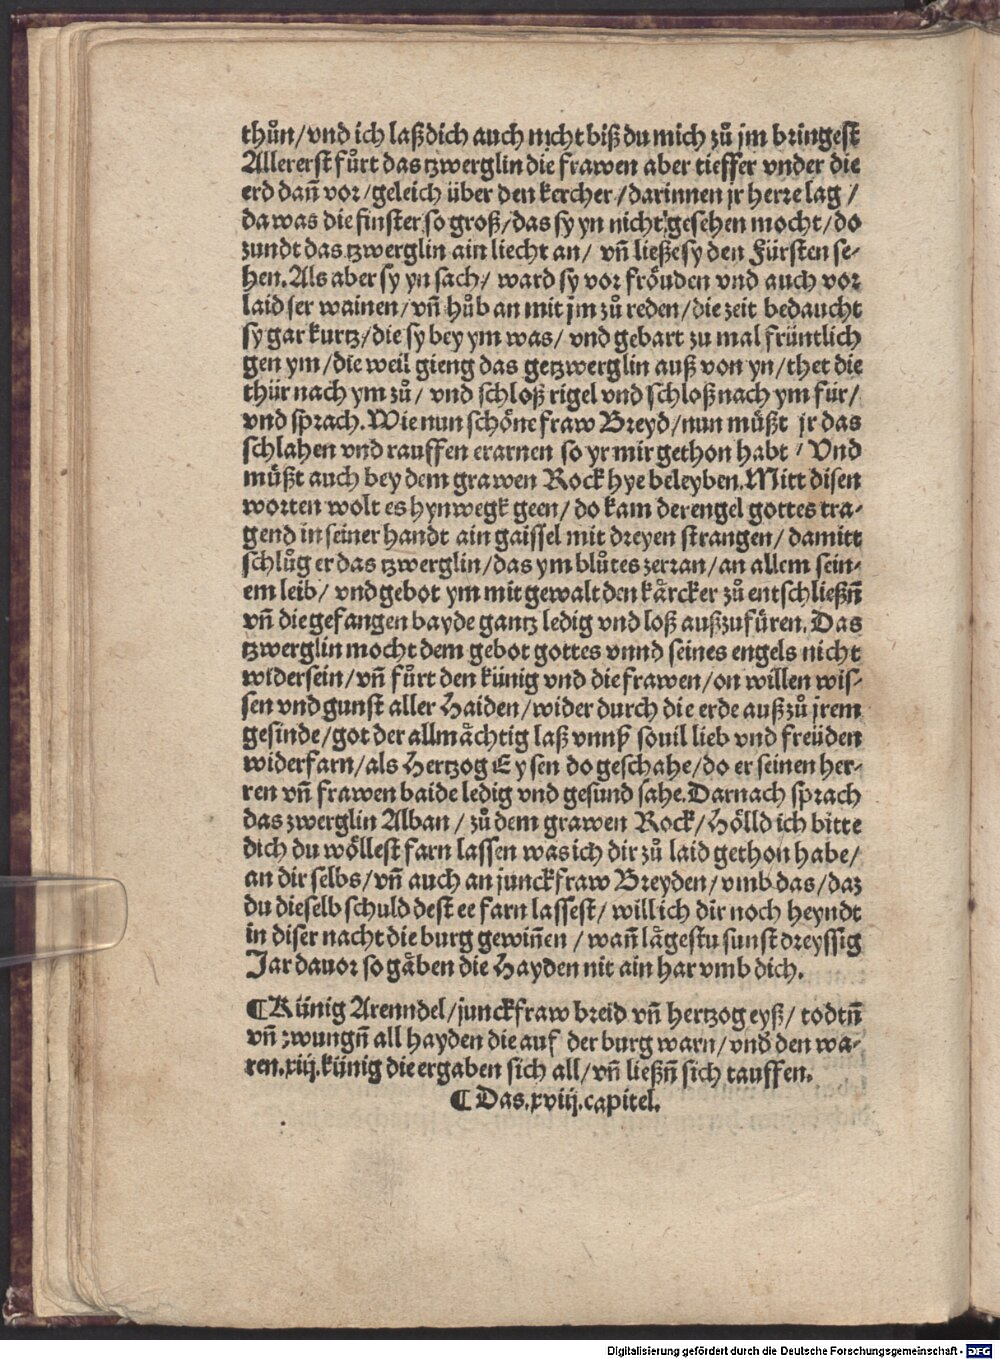 thůn/vnd ich laß dich auch nicht biß du mich zů jm bringest
Allererst fůrt das tzwerglin die frawen aber tieffer vnder die
erd dañ vor/geleich über den kercher/darinnen jr herre lag/
da was die finster so groß/das sy yn nicht gesehen mocht/do
zundt das tzwerglin ain liecht an/ vñ ließe sy den Fürsten se-
hen. Als aber sy yn sach/ ward sy vor fröuden vnd auch vor
laid ser wainen/vñ hůb an mit jm zů reden/die zeit bedaucht
sy gar kurtz/die sy bey ym was/ vnd gebart zu mal früntlich
gen ym/die weil gieng das getzwerglin auß von yn/thet die
thür nach ym zů/ vnd schloß rigel vnd schloß nach ym für/
vnd sprach. Wie nun schöne fraw Breyd/nun müßt jr das
schlahen vnd rauffen erarnen so yr mir gethon habt/ Vnd
müßt auch bey dem grawen Rock hye beleyben. Mitt disen
worten wolt es hynwegk geen/ do kam der engel gottes tra-
gend in seiner handt ain gaissel mit dreyen strangen/ damitt
schlůg er das tzwerglin/das ym blůtes zerran/an allem sein-
em leib/ vnd gebot ym mit gewalt den kärcker zů entschließñ
vñ die gefangen bayde gantz ledig vnd loß außzufüren. Das
tzwerglin mocht dem gebot gottes vnnd seines engels nicht
widersein/vñ fůrt den künig vnd die frawen/on willen wis-
sen vnd gunst aller Haiden/wider durch die erde auß zů jrem
gesinde/got der allmächtig laß vnnß souil lieb vnd freüden
widerfarn/als Hertzog Eysen do geschahe/do er seinen her-
ren vñ frawen baide ledig vnd gesund sahe. Darnach sprach
das zwerglin Alban/ zů dem grawen Rock/Hölld ich bitte
dich du wöllest farn lassen was ich dir zů laid gethon habe/
an dir selbs/vñ auch an junckfraw Breyden/vmb das/daz
du dieselb schuld dest ee farn lassest/ will ich dir noch heyndt
in diser nacht die burg gewiñen/wañ lägestu sunst dreyssig
Jar dauor so gäben die Hayden nit ain har vmb dich.
¶Künig Arenndel/junckfraw breid vñ hertzog eyß/ todtñ
vñ zwungñ all hayden die auf der burg warn/vnd den wa-
ren.xiij.künig die ergaben sich all/vñ ließñ sich tauffen.
¶Das.xviij.capitel.
Digitalisierung gefördert durch die Deutsche Forschungsgemeinschaft - DFG